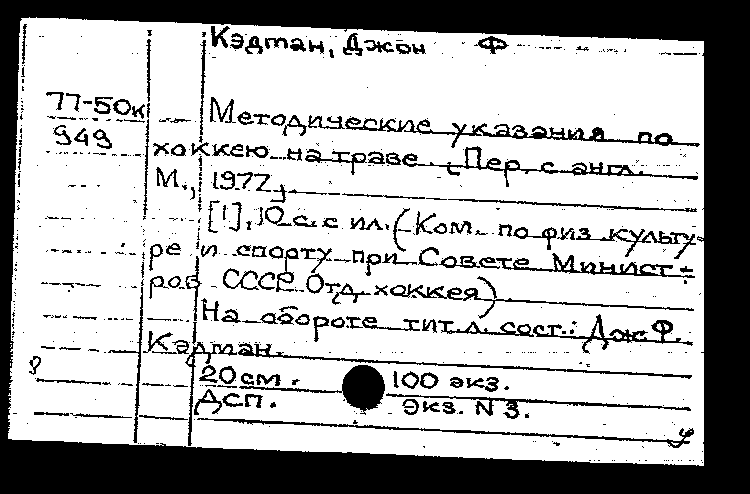 Кэдман, Джон Ф
77-50к
949
Методические указания по
хоккею на траве. [Пер. с англ.
М., 1977].
[1], 10 с. с ил. (Ком. по физ культу-
ре и спорту при Совете Минист-
ров СССР. Отд. хоккея)
На обороте тит. л. сост.: Дж. Ф.
Кэдман.
20 см. 100 экз.
ДСП. Экз. N 3.